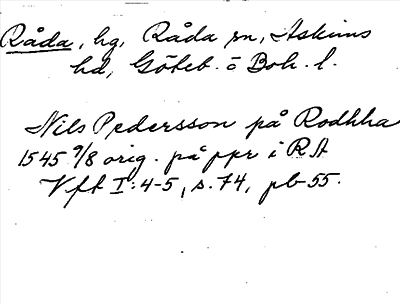 Råda, hg, Råda sn, Askims
hd, Göteb. o Boh. l.
Nils Pedersson på Rodhha
1545 9/8 orig. på ppr i RA
Vft I:4-5, s. 74, pb 55.